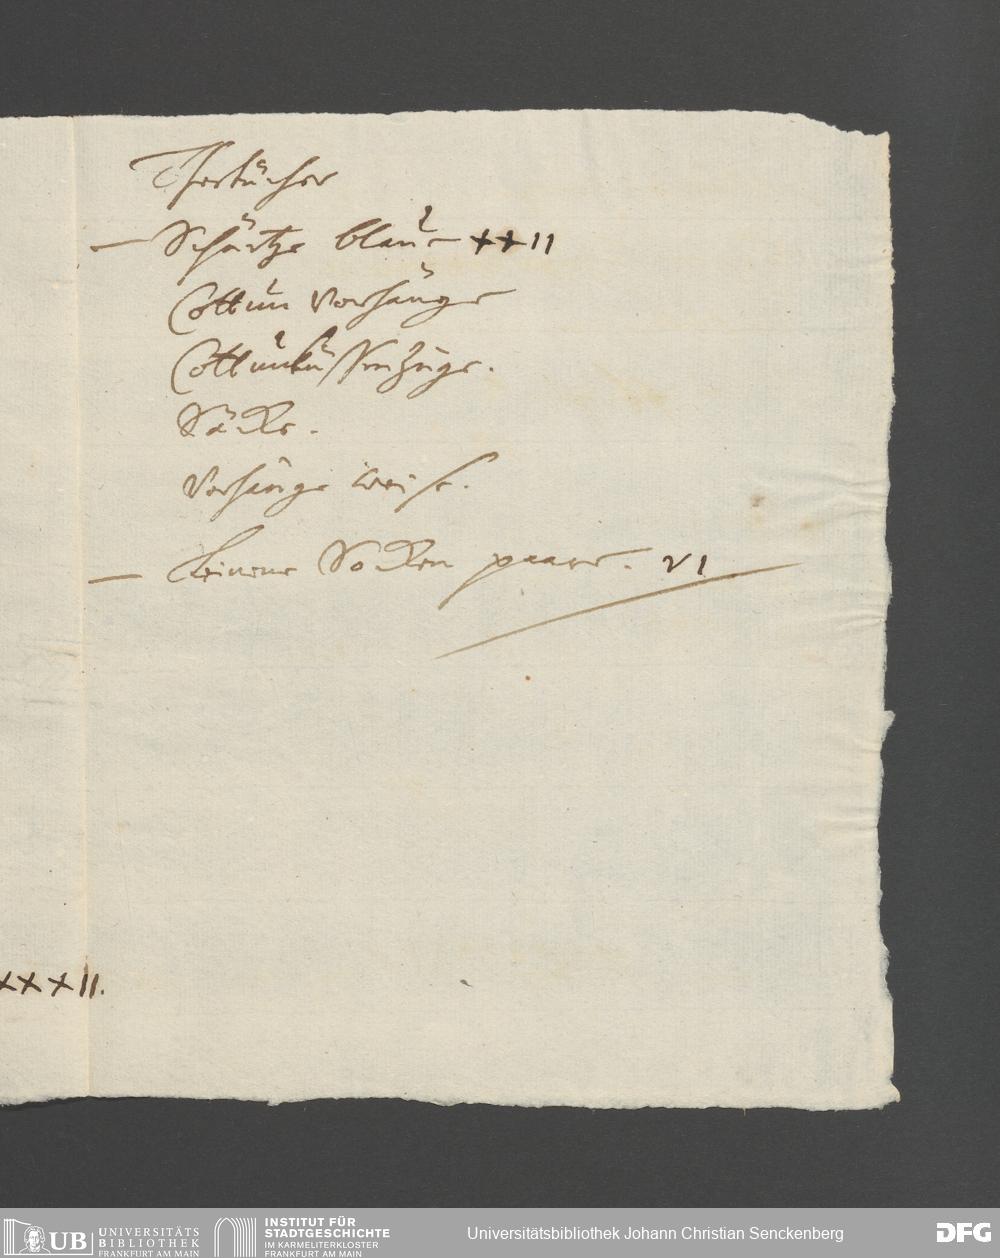 Theetücher
— Schürtze blau – xx11
Cottun Vorhänge
Cottunküssenzüge.
Säcke.
Vorhänge weise.
— Leinene Socken paare. V1
xxx11.
UB UNIVERSITÄTS BIBLIOTHEK FRANKFURT AM MAIN
INSTITUT FÜR STADTGESCHICHTE IM KARMELITERKLOSTER FRANKFURT AM MAIN
Universitätsbibliothek Johann Christian Senckenberg
DFG